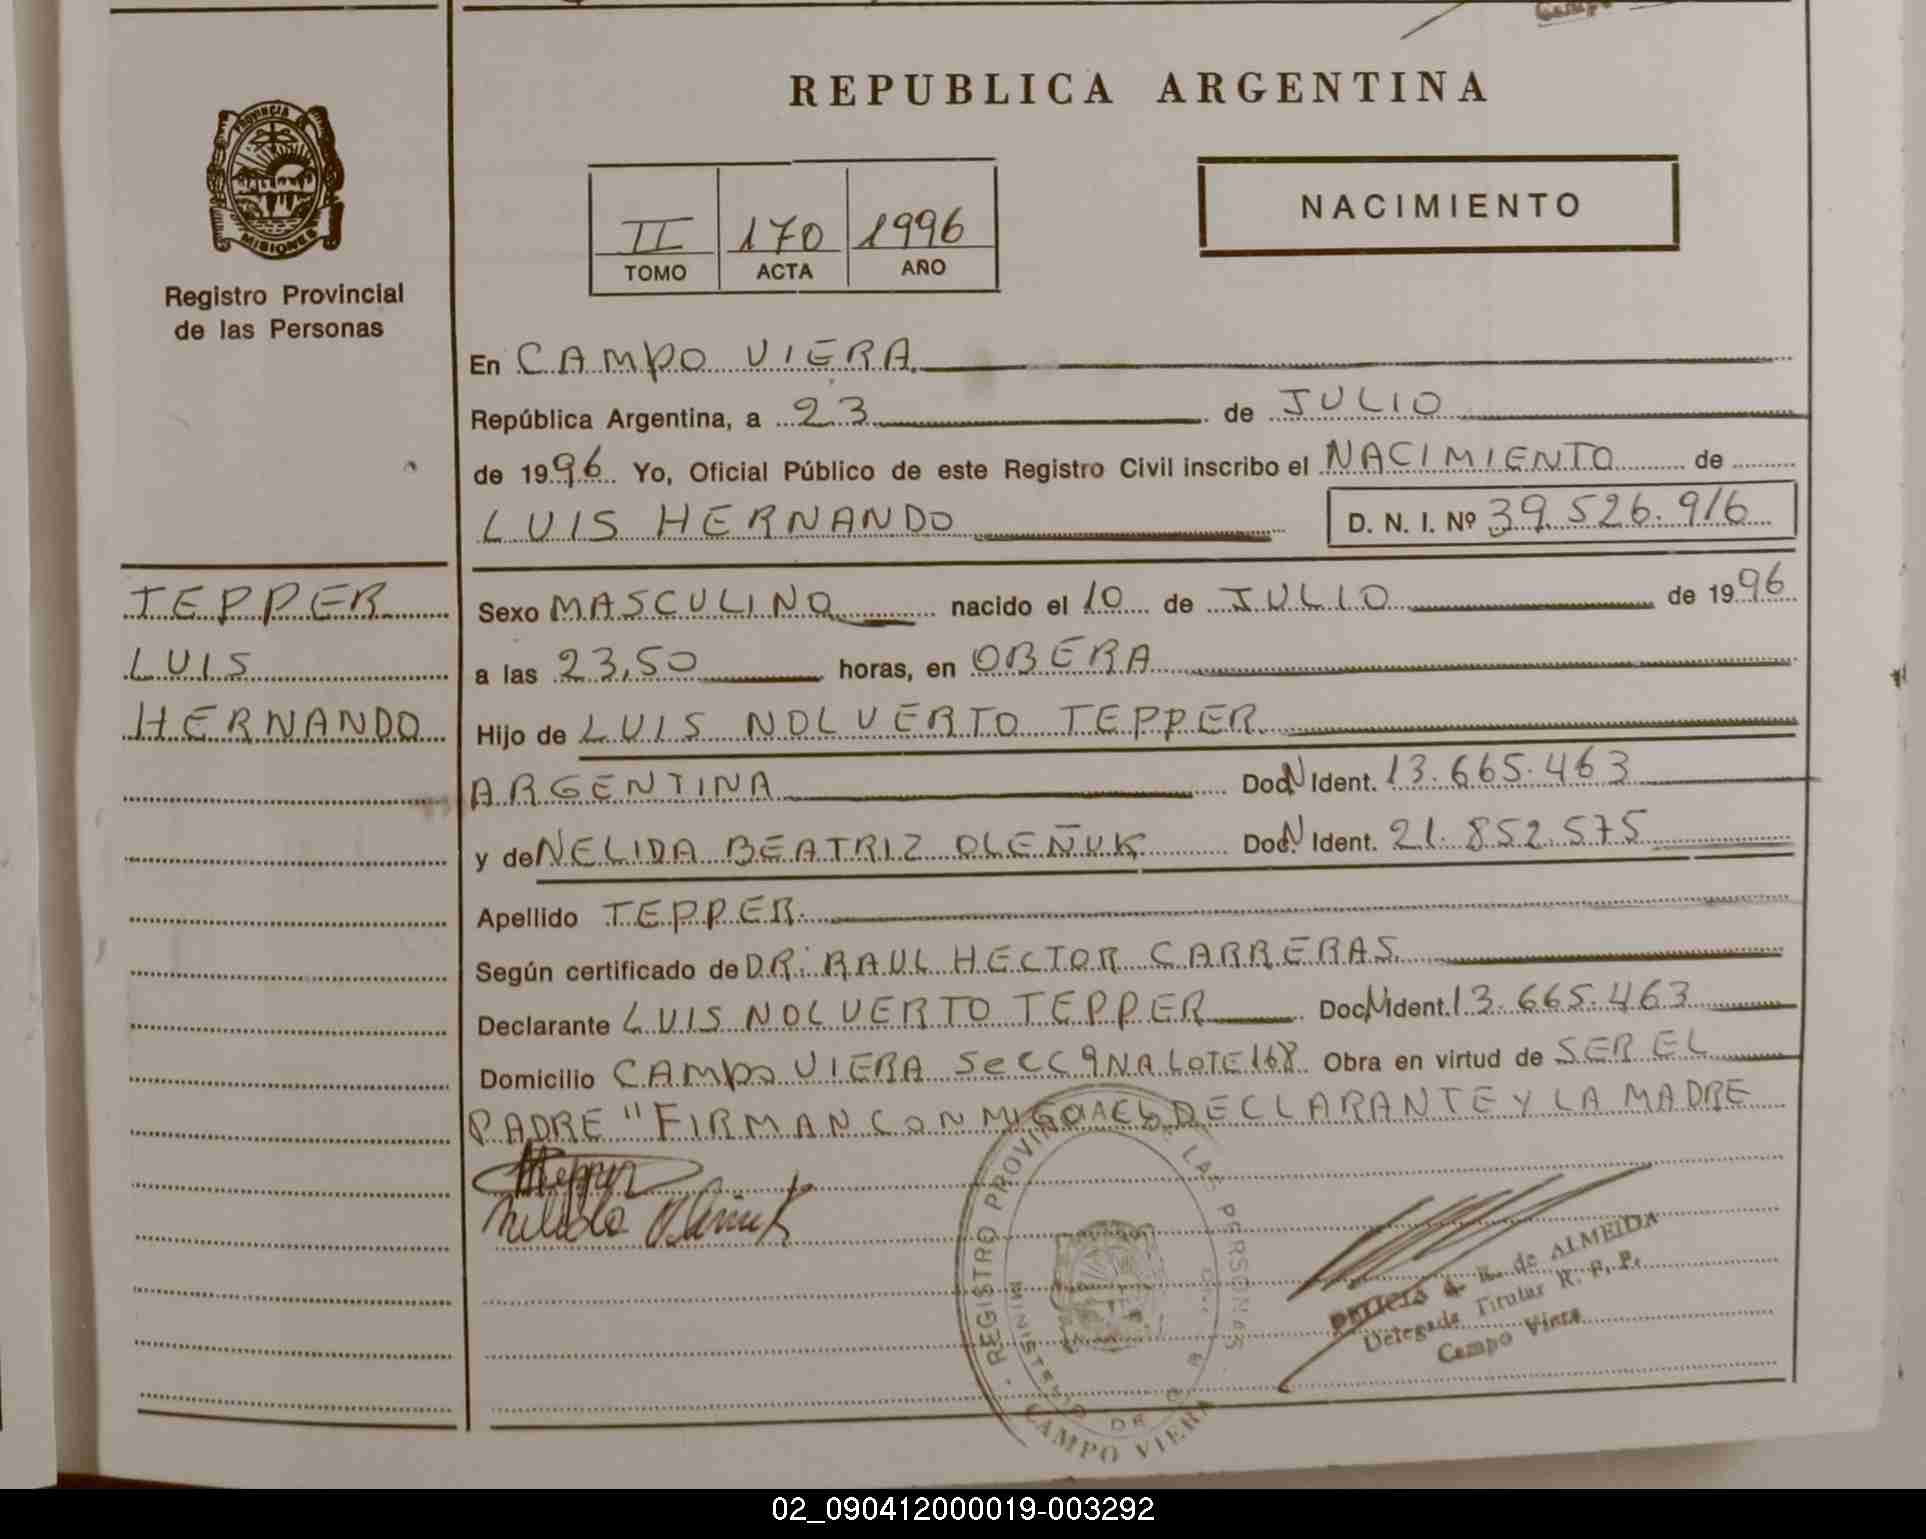 Campo
REPUBLICA ARGENTINA
PROVINCIA
MISIONES
Registro Provincial
de las Personas
II 170 1996
TOMO ACTA AÑO
NACIMIENTO
En CAMPO VIERA
República Argentina, a 23 de JULIO
de 1996 Yo, Oficial Público de este Registro Civil inscribo el NACIMIENTO de
LUIS HERNANDO D. N. I. Nº 39.526.916
TEPPER
LUIS
HERNANDO
Sexo MASCULINO nacido el 10 de JULIO de 1996
a las 23,50 horas, en OBERA
Hijo de LUIS NOLVERTO TEPPER
ARGENTINA Doc N Ident. 13.665.463
y de NELIDA BEATRIZ OLEÑUK Doc. N Ident. 21.852.575
Apellido TEPPER
Según certificado de DR: RAUL HECTOR CARRERAS
Declarante LUIS NOLVERTO TEPPER Doc N Ident. 13.665.463
Domicilio CAMPO VIERA SECC 9NA LOTE 168 Obra en virtud de SER EL
PADRE "FIRMAN CONMIGO EL DECLARANTE Y LA MADRE
Tepper
Nelida
REGISTRO PROVINCIAL DE LAS PERSONAS
MINISTERIO DE
CAMPO VIERA
de ALMEIDA
Delegada Titular R. P. P.
Campo Viera
02_090412000019-003292